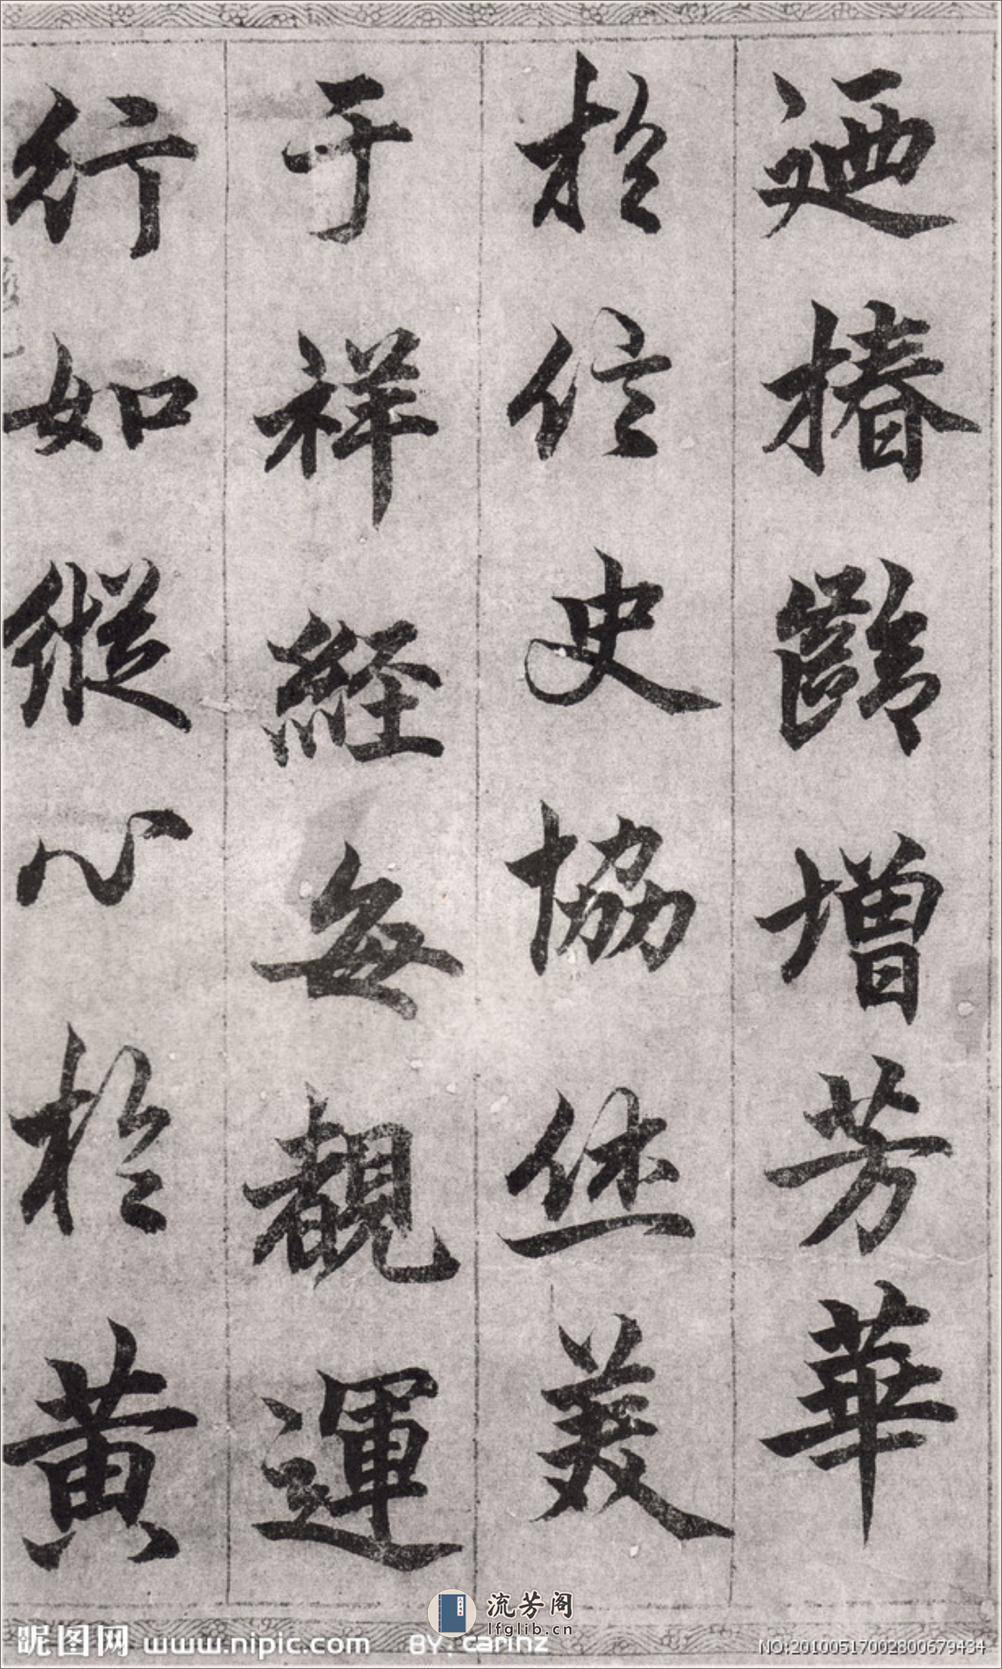 迺椿齡增芳華
於信史協休美
于祥經每覩運
行如縱心於黃
流芳阁
lfglib.cn
昵图网 www.nipic.com BY: carinz
NO:20100517002800679434